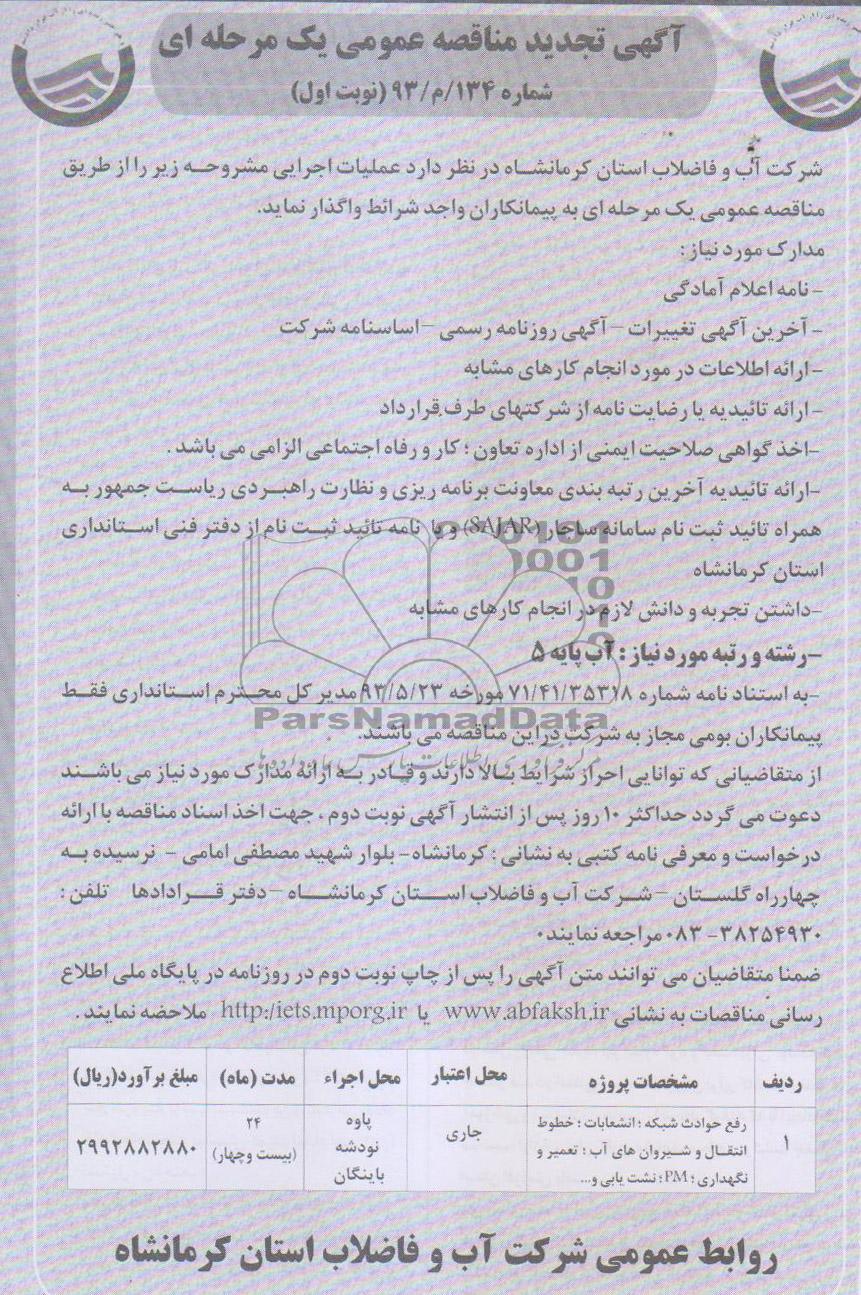 آگهی تجدید مناقصه عمومی یک مرحله ای
شماره ۹۳/م/۱۳۴ (نوبت اول)
شرکت آب و فاضلاب استان کرمانشاه در نظر دارد عملیات اجرایی مشروحه زیر را از طریق
مناقصه عمومی یک مرحله ای به پیمانکاران واجد شرائط واگذار نماید.
مدارک مورد نیاز:
-نامه اعلام آمادگی
- آخرین آگهی تغییرات – آگهی روزنامه رسمی – اساسنامه شرکت
-ارائه اطلاعات در مورد انجام کارهای مشابه
- ارائه تائیدیه یا رضایت نامه از شرکتهای طرف قرارداد
-اخذ گواهی صلاحیت ایمنی از اداره تعاون ؛ کار و رفاه اجتماعی الزامی می باشد .
-ارائه تائیدیه آخرین رتبه بندی معاونت برنامه ریزی و نظارت راهبردی ریاست جمهور به
همراه تائید ثبت نام سامانه ساجار (SAJAR) و یا نامه تائید ثبت نام از دفتر فنی استانداری
استان کرمانشاه
-داشتن تجربه و دانش لازم در انجام کارهای مشابه
-رشته و رتبه مورد نیاز : آب پایه ۵
-به استناد نامه شماره ۷۱/۴۱/۳۵۳۱۸ مورخه ۹۳/۵/۲۳ مدیر کل محترم استانداری فقط
پیمانکاران بومی مجاز به شرکت در این مناقصه می باشند.
ParsNamadData
از متقاضیانی که توانایی احراز شرایط بالا دارند و قادر به ارائه مدارک مورد نیاز می باشند
دعوت می گردد حداکثر ۱۰ روز پس از انتشار آگهی نوبت دوم ، جهت اخذ اسناد مناقصه با ارائه
درخواست و معرفی نامه کتبی به نشانی : کرمانشاه- بلوار شهید مصطفی امامی - نرسیده به
چهارراه گلستان – شرکت آب و فاضلاب استان کرمانشاه – دفتر قرادادها تلفن :
۰۸۳-۳۸۲۵۴۹۳۰ مراجعه نمایند۰
ضمنا متقاضیان می توانند متن آگهی را پس از چاپ نوبت دوم در روزنامه در پایگاه ملی اطلاع
رسانی مناقصات به نشانی www.abfaksh.ir یا http:/iets.mporg.ir ملاحضه نمایند .
ردیف مشخصات پروژه محل اعتبار محل اجراء مدت (ماه) مبلغ برآورد(ریال)
۱ رفع حوادث شبکه ؛ انشعابات ؛ خطوط انتقال و شیروان های آب ؛ تعمیر و نگهداری ؛ PM ؛ نشت یابی و... جاری پاوه نودشه باینگان ۲۴ (بیست وچهار) ۲۹۹۲۸۸۲۸۸۰
روابط عمومی شرکت آب و فاضلاب استان کرمانشاه